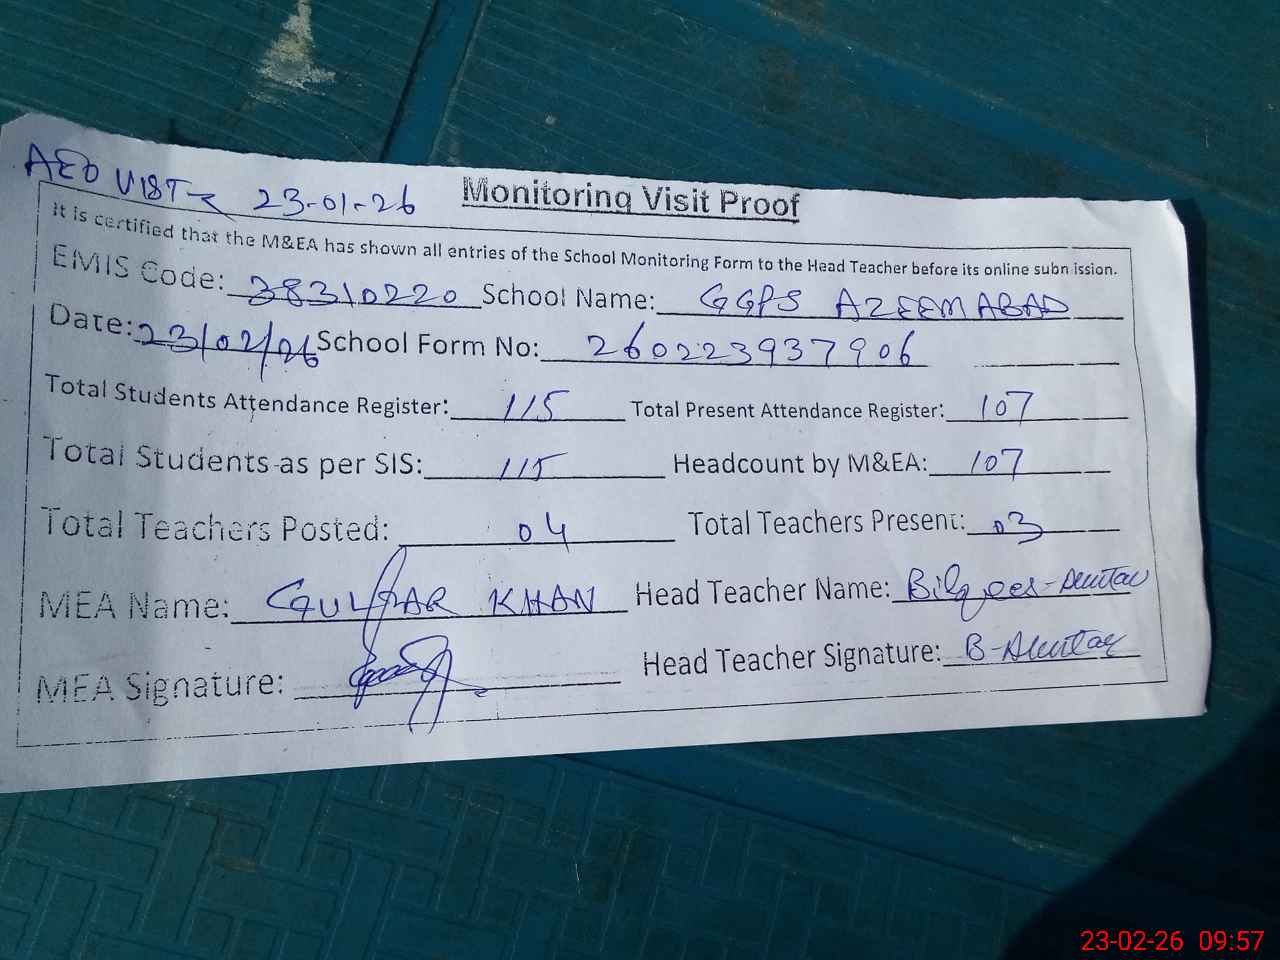 AEO VIST 23-01-26
Monitoring Visit Proof
It is certified that the M&EA has shown all entries of the School Monitoring Form to the Head Teacher before its online subn ission.
EMIS Code: 38310220 School Name: GGPS AZEEMABAD
Date: 23/02/26 School Form No: 260223937906
Total Students Attendance Register: 115 Total Present Attendance Register: 107
Total Students as per SIS: 115 Headcount by M&EA: 107
Total Teachers Posted: 04 Total Teachers Present: 03
MEA Name: GULFAR KHAN Head Teacher Name: Bilqees
MEA Signature: Head Teacher Signature: B-
23-02-26 09:57